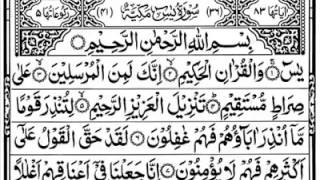 اٰیاتها ۸۳ (۳۶) سُوْرَةُ یٰسٓ مَكِّيَّةٌ (۴۱) رکوعاتها ۵
بِسْمِ اللّٰهِ الرَّحْمٰنِ الرَّحِیْمِ
یٰسٓ ۚ وَالْقُرْاٰنِ الْحَكِیْمِ ۙ اِنَّكَ لَمِنَ الْمُرْسَلِیْنَ ۙ عَلٰی
صِرَاطٍ مُّسْتَقِیْمٍ ؕ تَنْزِیْلَ الْعَزِیْزِ الرَّحِیْمِ ۙ لِتُنْذِرَ قَوْمًا
مَّاۤ اُنْذِرَ اٰبَآؤُهُمْ فَهُمْ غٰفِلُوْنَ ۝ لَقَدْ حَقَّ الْقَوْلُ عَلٰۤی
اَكْثَرِهِمْ فَهُمْ لَا یُؤْمِنُوْنَ ۝ اِنَّا جَعَلْنَا فِیْۤ اَعْنَاقِهِمْ اَغْلٰلًا